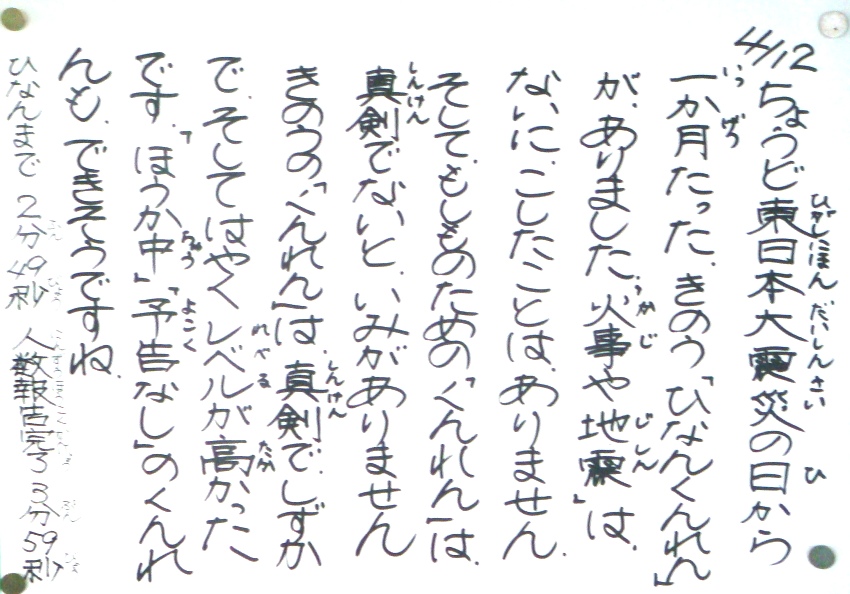 4/12 ちょうど東日本大震災の日から
一か月たった、きのう「ひなんくんれん」
が、ありました。火事や地震」は、
ないに、こしたことは、ありません。
そして、もしものための「くんれん」は、
真剣でないと、いみがありません
きのうの「くんれん」は、真剣で、しずか
で、そして はやく レベルが高かった
です。「ほうか中」「予告なし」のくんれ
んも、できそうですね。
ひなんまで 2分49秒 人数報告完了 3分59秒